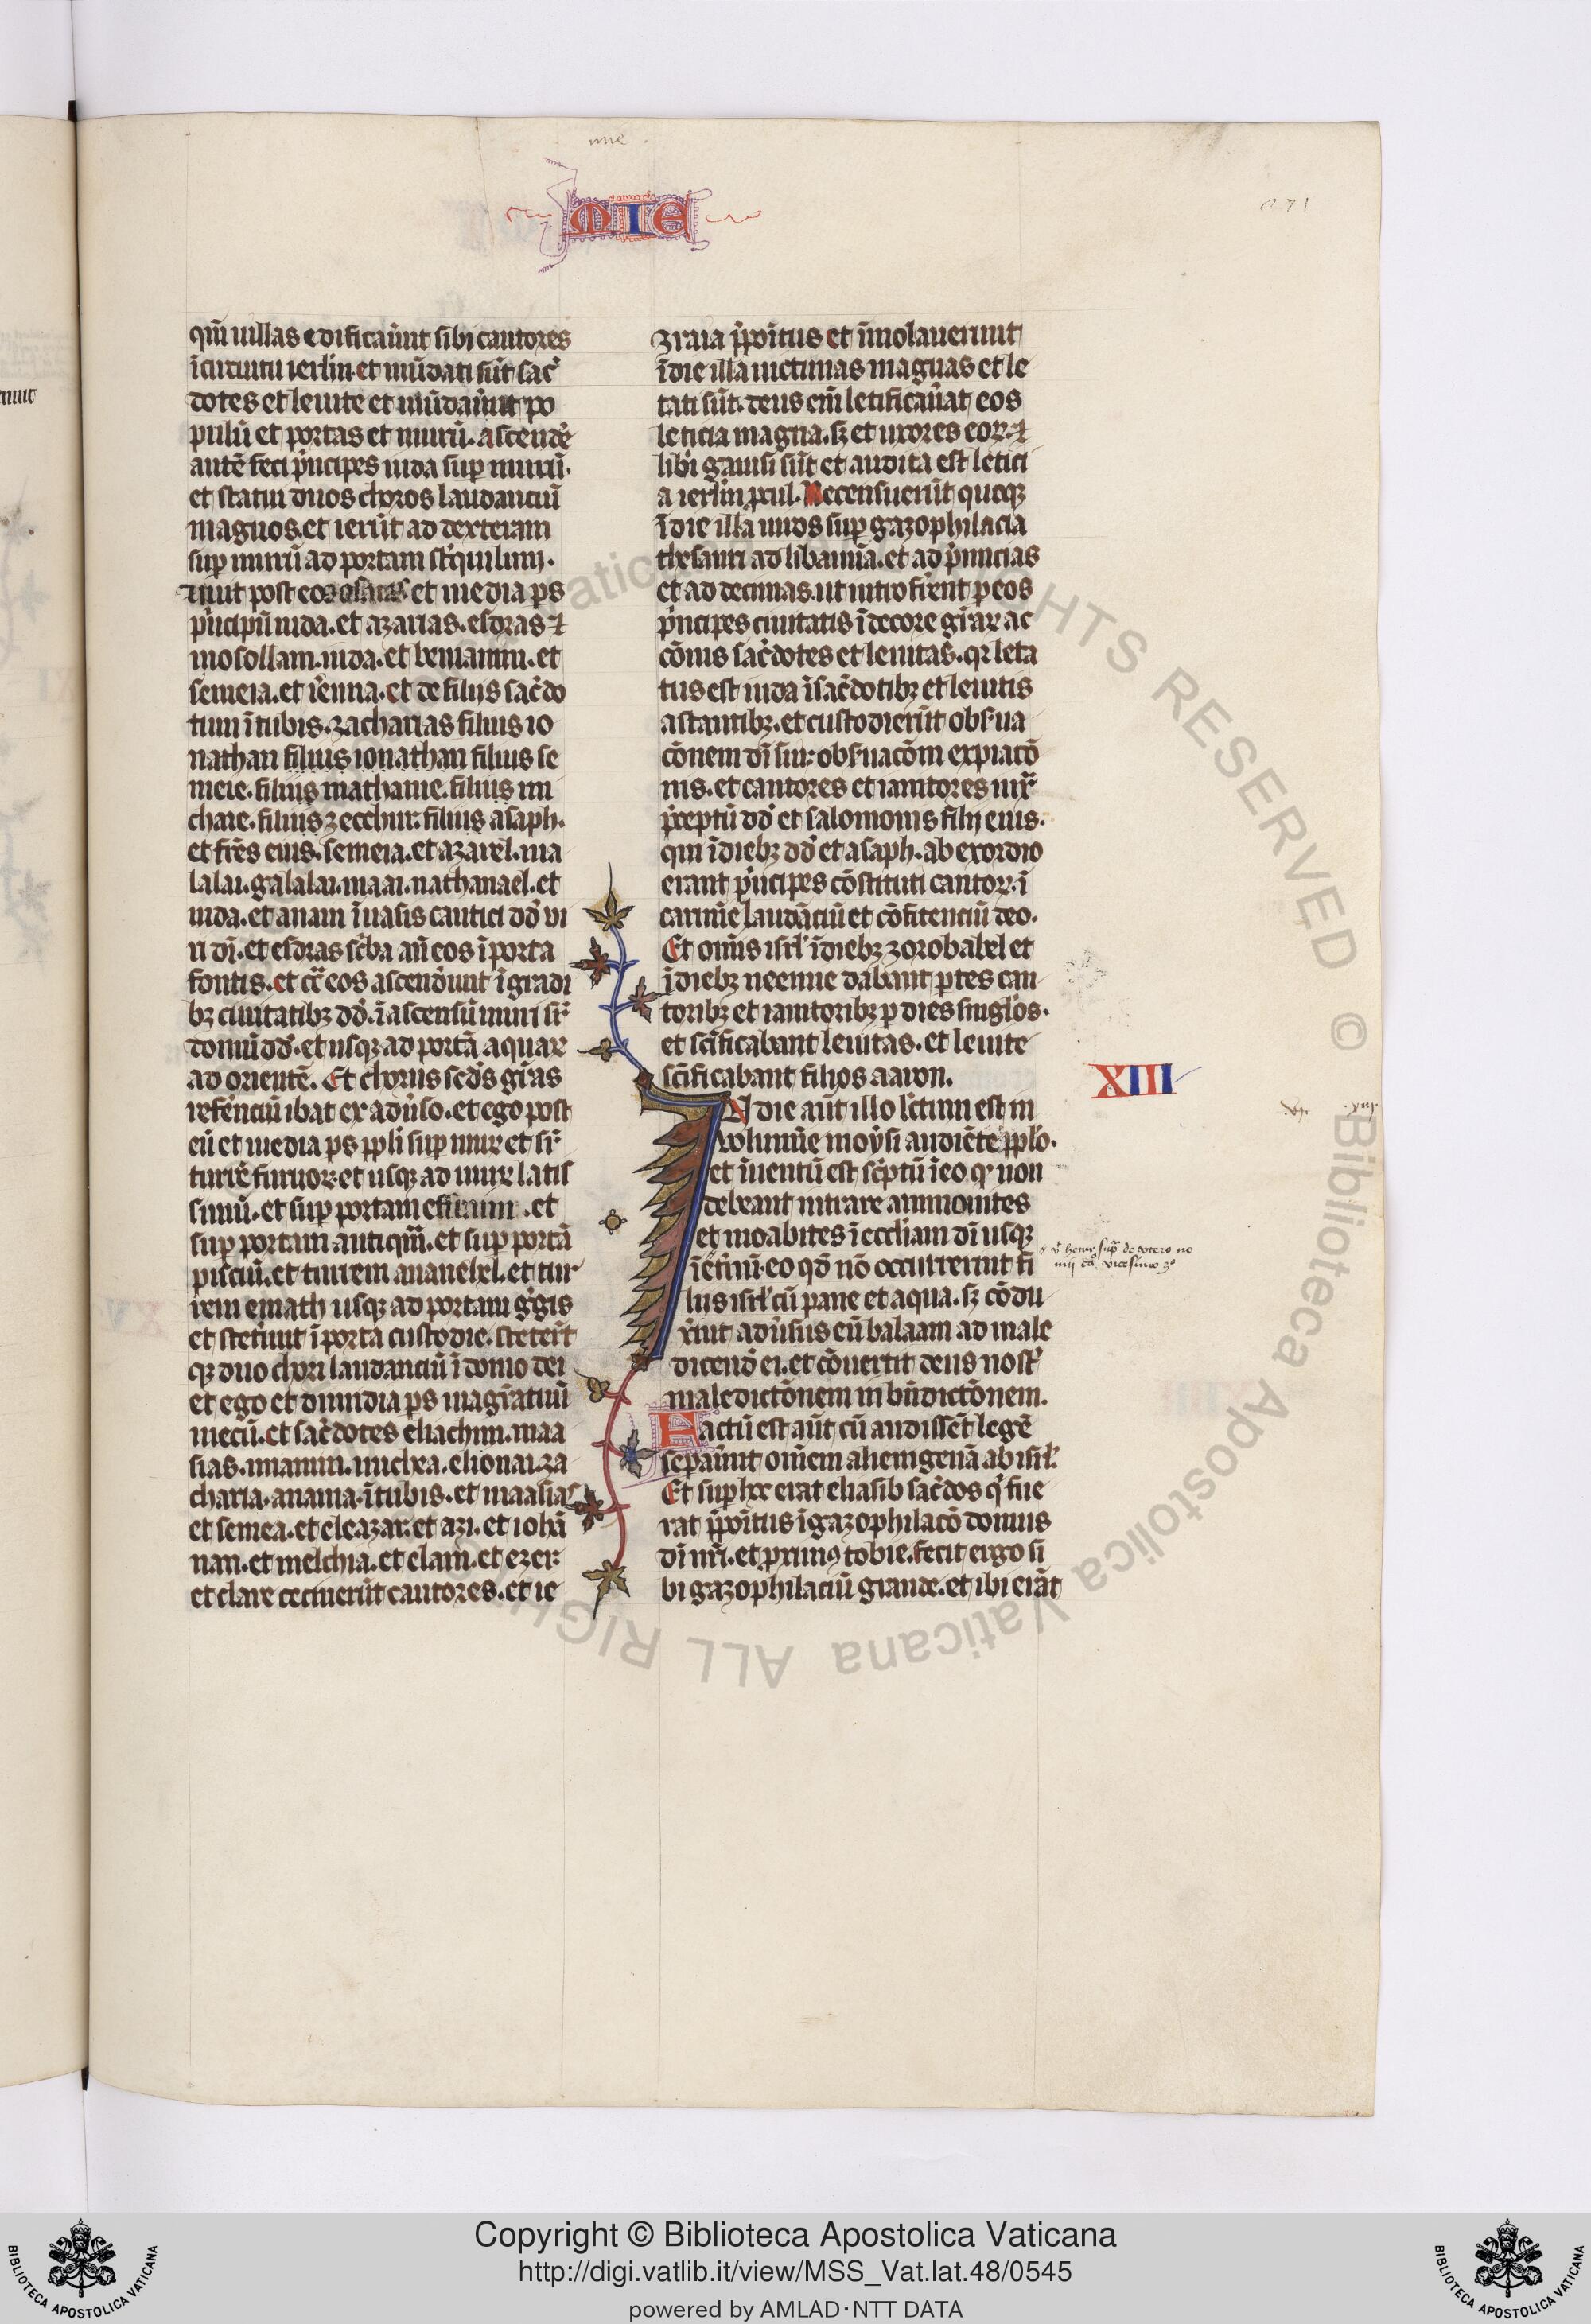 mie
MIE
271
qm̄ uillas edificauerūt sibi cantores
ī circuitu ierl̄m. et mūdati sūt sac̄
dotes et leuite et mūdauerūt po
pulū et portas et murū. ascendē
autē feci p̄ncipes iuda sup murū.
et statui duos choros laudanciū
magnos. et ierūt ad dexteram
sup murū ad portam st̄quilinij.
et iuit post eos osaias et media ps
p̄ncipū iuda. et azarias. esdras ⁊
mosollam. iuda. et beniamin. et
semeia. et iēmia. et de filiis sac̄do
tum ī tubis. zacharias filius io
nathan filius ionathan filius se
meie. filius mathanie. filius mi
chaie. filius zecchur. filius asaph.
et frēs eius. semeia. et azarel. ma
lalai. galalai. maai. nathanael. et
iuda. et anani ī uasis cantici dd̄ ui
ri dī. et esdras sc̄ba an̄ eos ī porta
fontis. et cͣ eos ascendūnt ī gradi
bꝫ ciuitatibꝫ dd̄. ī ascensū muri sr̄
domū dd̄. et usqꝫ ad portā aquaꝝ
ad orientē. Et chorus scd̄s gr̄as
referenciū ibat ex aduso. et ego post
eū et media ps ppl̄i sup mur et sr̄
turrē furnoꝝ. et usqꝫ ad mur latis
simū. et sup portam effraim. et
sup portam antiqm̄. et sup portā
pisciū. et turrem ananehel. et tur
rem emath usqꝫ ad portam gregis
et steterunt ī porta custodie. steterūt
qꝫ duo chori laudanciū ī domo dei
et ego et dimidia ps magr̄atuū
mecū. et sac̄dotes eliachim. maa
sias. miamin. michea. elionai. za
charia. anania. ī tubis. et maasias
et semea. et eleazar. et azi. et iohā
nan. et melchia. et elam. et ezer.
et clare cecinerūt cantores. et ie
zraia p̄poitus et īmolauerunt
ī die illa uictimas magnas et le
tati sūt. deus em̄ letificauāt eos
leticia magna. sꝫ et uxores eoꝝ. ⁊
libi gauisi sūt et audita est letici
a ierl̄m pcul. Recensuerūt quoqꝫ
ī die illa uiros sup gazophilacia
thesauri ad libamīa. et ad p̄micias
et ad decimas. ut introfer̄ent p eos
p̄ncipes ciuitatis ī decore gr̄aꝝ ac
cōnis sac̄dotes et leuitas. qꝛ leta
tus est iuda ī sac̄dotibꝫ et leuitis
astantibꝫ. et custodierūt obs̄ua
cōnem dī sui. obs̄uacōm expiacō
nis. et cantores et ianitores iuxͣ
p̄ceptū dd̄ et salomonis filij eius.
qui ī diebꝫ dd̄ et asaph. ab exordio
erant p̄ncipes cōstituti cantoꝝ. ī
carmīe laudāciū et cōfitenciū deo.
Et omīs isrl̄ ī diebꝫ zorobabel et
ī diebꝫ neemie dabant ptes can
toribꝫ et ianitoribꝫ p dies singlos.
et sc̄ificabant leuitas. et leuite
sc̄ificabant filios aaron.
XIII
IN die aūt illo lc̄tum est in
uolumīe moysi audiēte pplo.
et īuentū est sc̄ptū ī eo qꝛ non
debeant intrare ammonites
et moabites ī eccl̄iam dī usqꝫ
ī etn̄ū. eo qd̄ nō occurrerunt fi
liis isrl̄ cū pane et aqua. sꝫ cōdu
xerunt aduersus eū balaam ad male
dicend̄ ei. et cōuertit deus nost̄
maledictōnem in bn̄dictōnem.
Factū est aūt cū audissēt legē
sepauerūt omnem alienigenā ab isrl̄.
Et sup hec erat eliasib sac̄dos qͥ fue
rat p̄poitus ī gazophilacō domus
dī nr̄i. et proximꝰ tobie. fecit ergo si
bi gazophilaciū grande. et ibi erāt
Copyright © Biblioteca Apostolica Vaticana
http://digi.vatlib.it/view/MSS_Vat.lat.48/0545
powered by AMLAD·NTT DATA
BIBLIOTECA APOSTOLICA VATICANA
BIBLIOTECA APOSTOLICA VATICANA
© Biblioteca Apostolica Vaticana ALL RIGHTS RESERVED